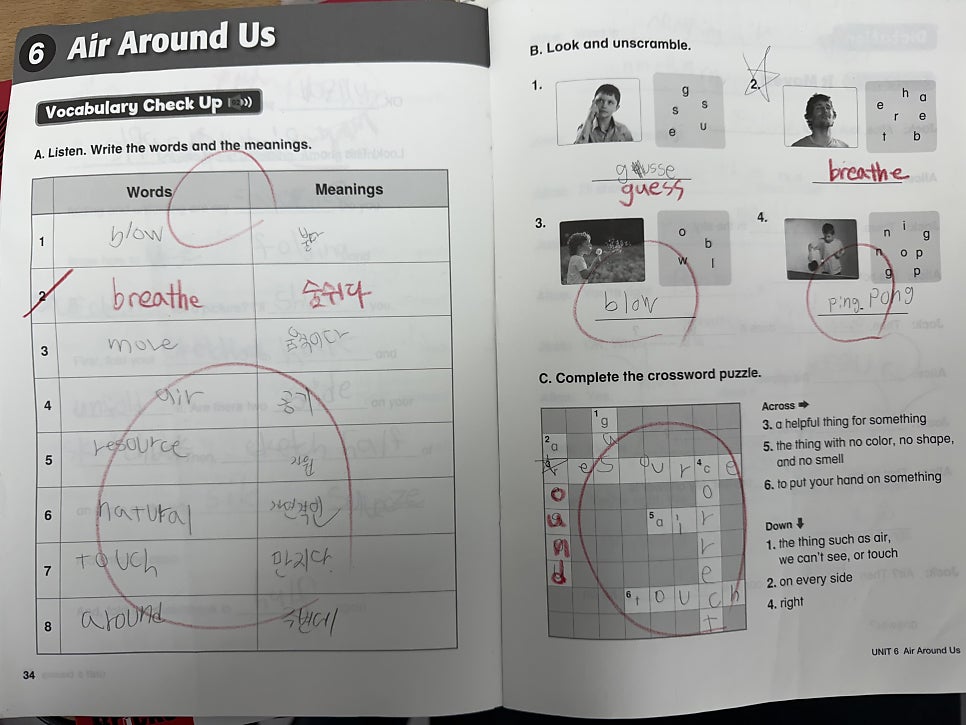 6 Air Around Us
Vocabulary Check Up
A. Listen. Write the words and the meanings.
Words Meanings
1 blow 불다
2 breathe 숨쉬다
3 move 움직이다
4 air 공기
5 resource 자원
6 natural 자연적인
7 touch 만지다
8 around 주변에
34
B. Look and unscramble.
1.
g
s s
e u
gusse
guess
2.
h a
e
r e
t b
breathe
3.
o
b
w l
blow
4.
n i g
n o p
g p
ping pong
C. Complete the crossword puzzle.
1 g
2 a
r e s o u r 4 c e
o o
u 5 a i r r
n r
d e
6 t o u c h
t
Across
3. a helpful thing for something
5. the thing with no color, no shape,
and no smell
6. to put your hand on something
Down
1. the thing such as air,
we can't see, or touch
2. on every side
4. right
UNIT 6 Air Around Us